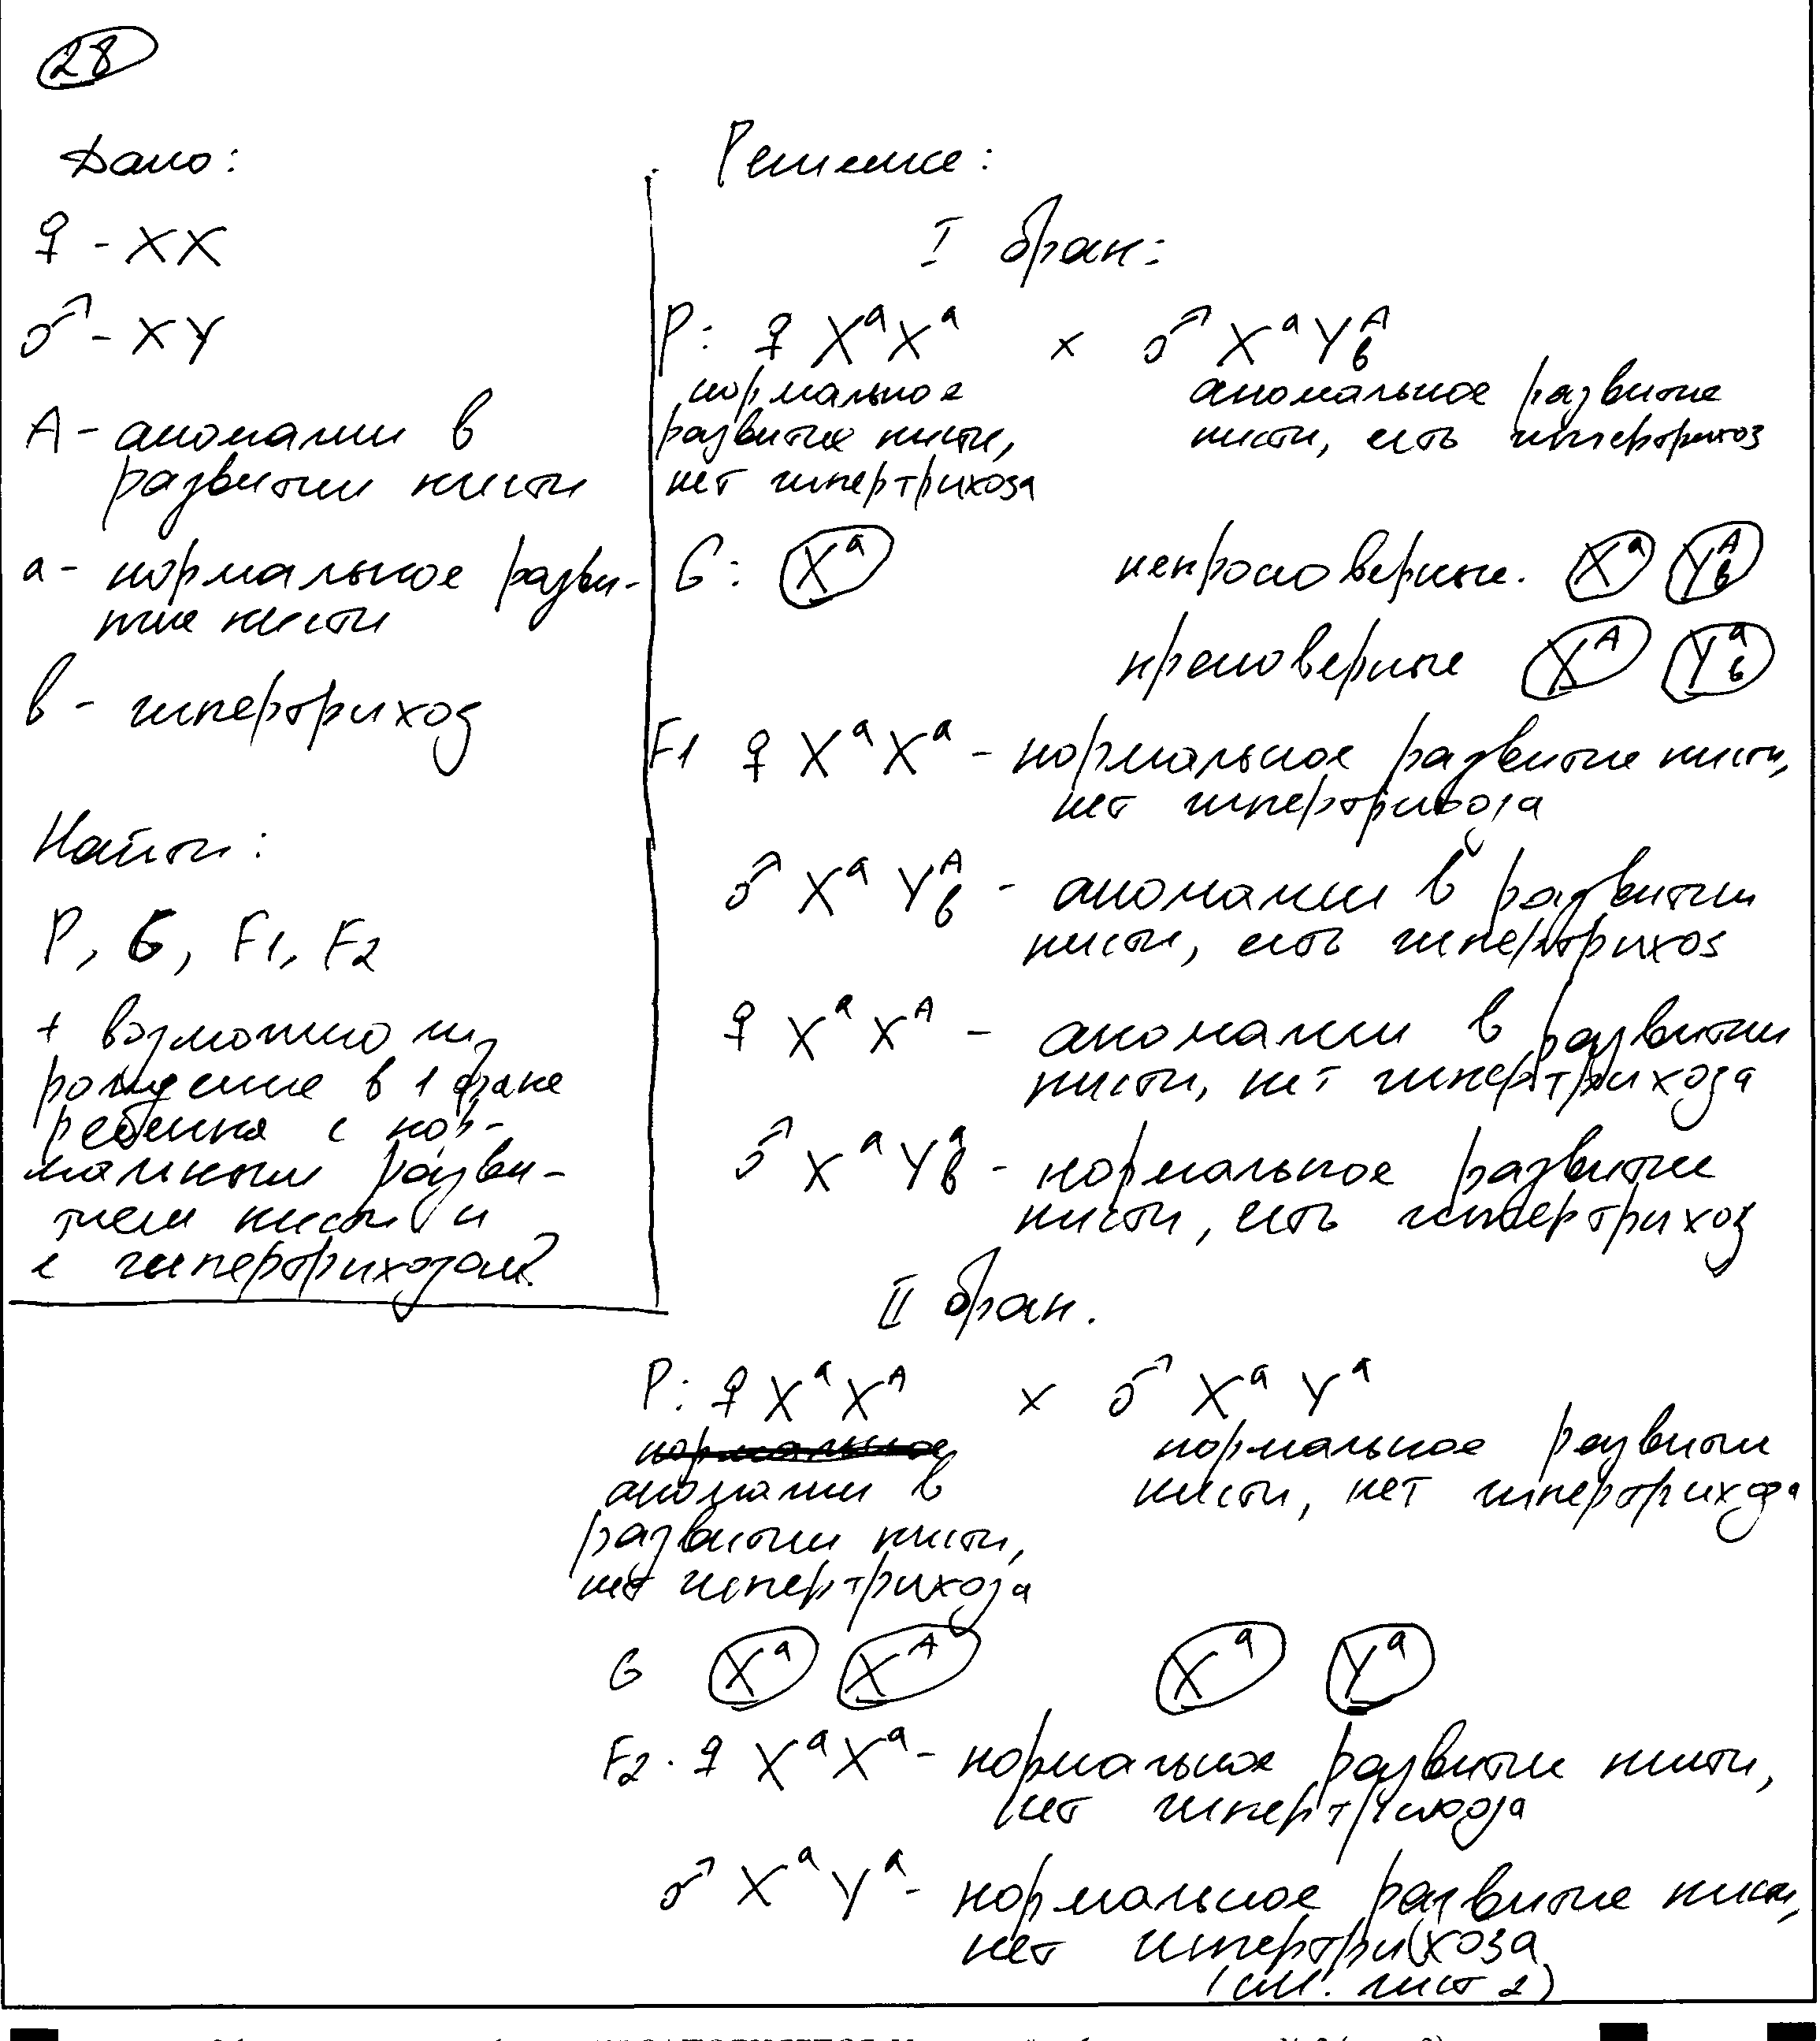 28
Дано:
♀ - XX
♂ - XY
A - аномалии в
развитии кисти
a - нормальное разви-
тие кисти
в - гипертрихоз
Найти:
P, G, F1, F2
+ возможно ли
рождение в 1 браке
ребёнка с нор-
мальным разви-
тием кисти и
с гипертрихозом?
Решение:
I брак:
P: ♀ XᵃXᵃ × ♂ XᵃYᴬв
нормальное аномальное развитие
развитие кисти, кисти, есть гипертрихоз
нет гипертрихоза
G: Xᵃ некроссоверные. Xᵃ Yᴬв
кроссоверные Xᴬ Yᵃв
F1 ♀ XᵃXᵃ - нормальное развитие кисти,
нет гипертрихоза
♂ XᵃYᴬв - аномалии в развитии
кисти, есть гипертрихоз
♀ XᵃXᴬ - аномалии в развитии
кисти, нет гипертрихоза
♂ XᵃYᵃв - нормальное развитие
кисти, есть гипертрихоз
II брак.
P: ♀ XᵃXᴬ × ♂ XᵃYᵃ
нормальное нормальное развитие
аномалии в кисти, нет гипертрихоза
развитии кисти,
нет гипертрихоза
G Xᵃ Xᴬ Xᵃ Yᵃ
F2. ♀ XᵃXᵃ - нормальное развитие кисти,
нет гипертрихоза
♂ XᵃYᵃ - нормальное развитие кисти,
нет гипертрихоза
(см. лист 2)